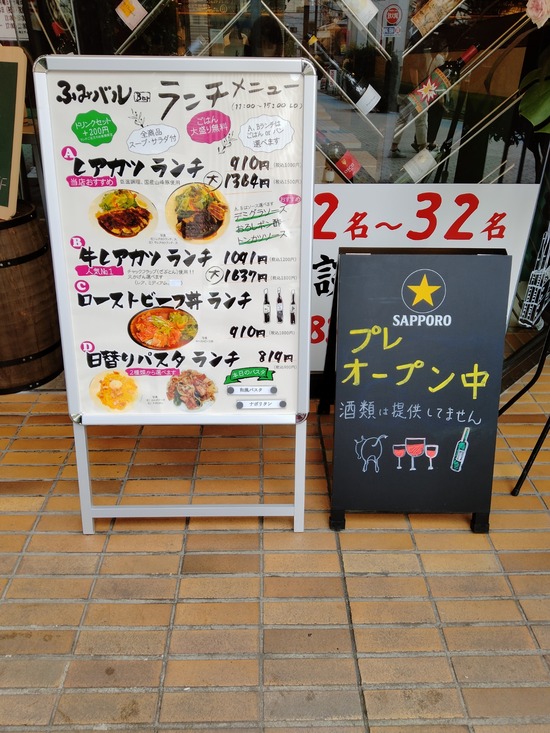 ふみバル Bar ランチメニュー
(11:00~15:00 LO)
ドリンクセット
+200円
全商品
スープ・サラダ付
ごはん
大盛り無料
A、Bランチは
ごはん or パン
選べます
A レアカツ ランチ 910円
当店おすすめ 低温調理、国産山形豚使用 大 1364円
A、Bはソース選べます おすすめ
デミグラソース
おろしポン酢
トンカツソース
B 牛レアカツ ランチ 1091円
人気No.1 大 1637円
C ローストビーフ丼 ランチ
910円
D 日替りパスタ ランチ 819円
2種類から選べます 本日のパスタ
和風パスタ
ナポリタン
2名～32名
SAPPORO
プレ
オープン中
酒類は提供してません